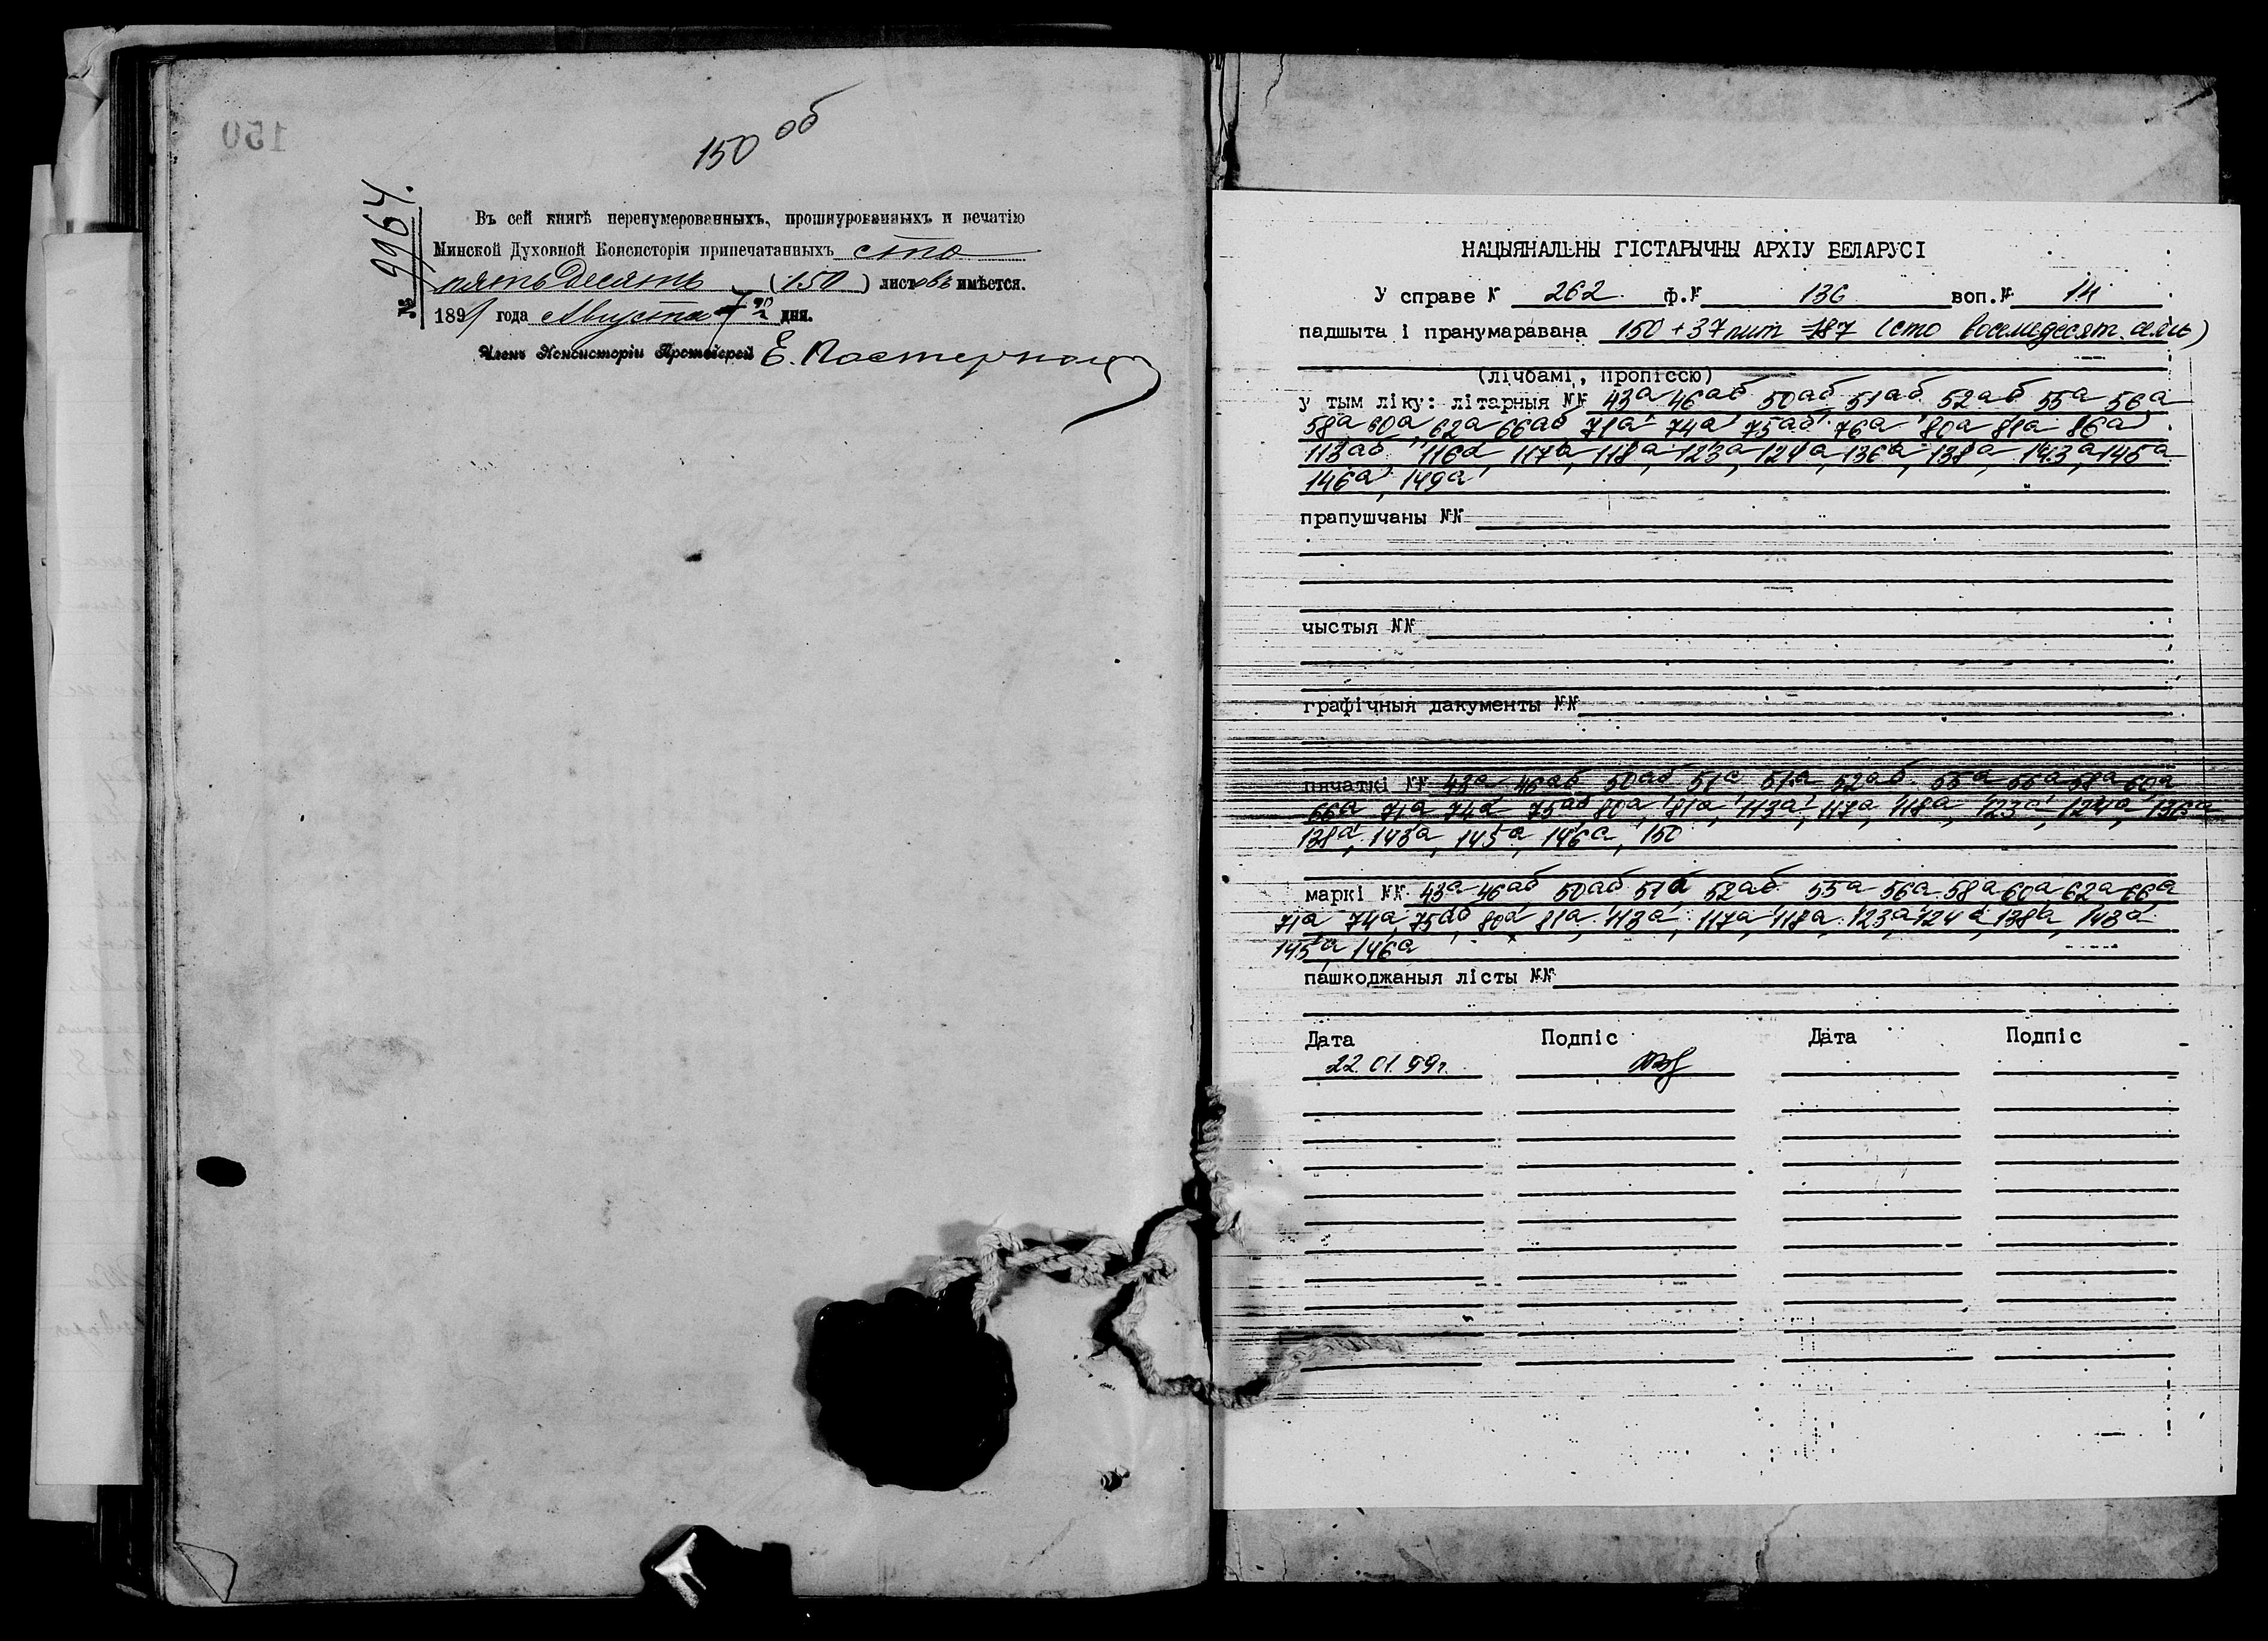 150
150 об
№ 9964.
Въ сей книгѣ перенумерованныхъ, прошнурованныхъ и печатію
Минской Духовной Консисторіи припечатанныхъ сто
пятьдесятъ (150) листовъ имѣется.
1891 года Августа 7 дня.
Членъ Консисторіи Протоіерей Е. Пастернакъ
НАЦЫЯНАЛЬНЫ ГІСТАРЫЧНЫ АРХІУ БЕЛАРУСІ
У справе № 262 ф.№ 136 воп.№ 14
падшыта і пранумаравана 150 + 37 лит = 187 (сто восемдесят семь)
(лічбамі, пропіссю)
у тым ліку: літарныя №№ 43а 46аб 50аб 51аб 52аб 55а 56а
58а, 60а, 62а 66аб 71а 74а 75аб 76а 80а 81а 86а
113аб 116а, 117а, 118а, 123а, 124а, 136а, 138а, 143а, 145а
146а, 149а
прапушчаны №№
чыстыя №№
графічныя дакументы №№
пячаткі №№ 43а 46аб 50аб 51а 52аб 55а 56а 58а 60а
66а 71а 74а 75аб 80а, 81а, 113а, 117а, 118а, 123а, 124а, 136а
138а, 143а, 145а, 146а, 150
маркі №№ 43а 46аб, 50аб 51а 52аб 55а 56а 58а 60а, 62а 66а
71а, 74а, 75аб, 80а, 81а, 113а, 117а, 118а, 123а, 124а, 138а, 143а
145а, 146а
пашкоджаныя лісты №№
Дата Подпіс Дата Подпіс
22.01.99г.